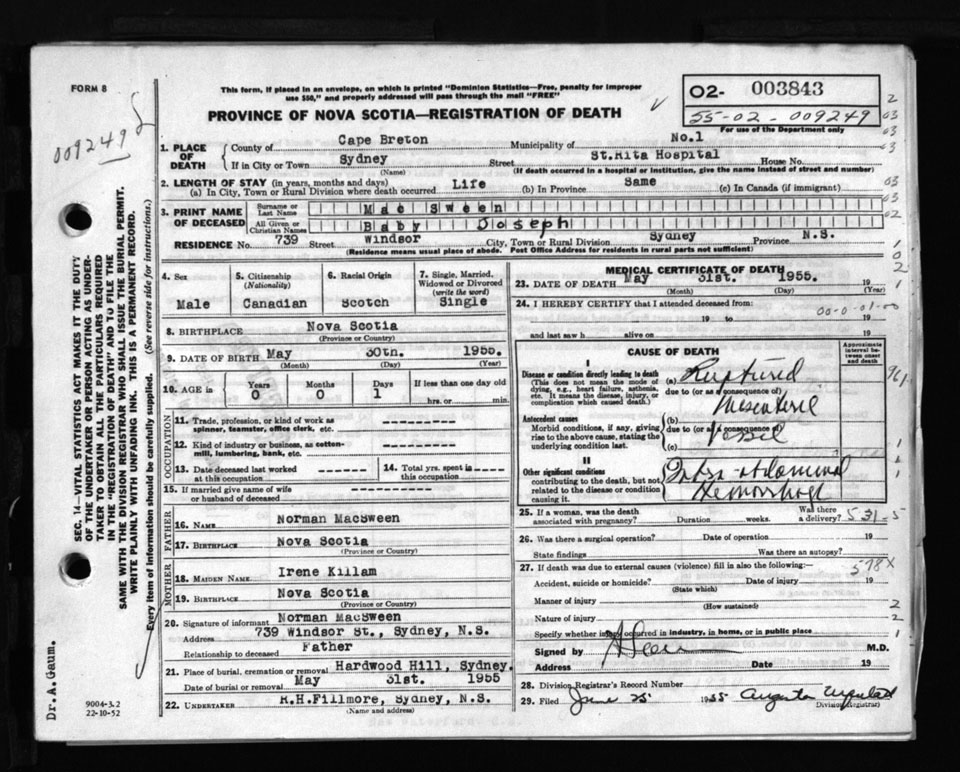 FORM 8
This form, if placed in an envelope, on which is printed "Dominion Statistics—Free, penalty for improper
use $50," and properly addressed will pass through the mail "FREE"
PROVINCE OF NOVA SCOTIA—REGISTRATION OF DEATH
O2- 003843
55-02-009249
For use of the Department only
009249
1. PLACE OF DEATH
County of Cape Breton Municipality of No.1
If in City or Town Sydney Street St.Rita Hospital House No.
(Name) (If death occurred in a hospital or institution, give the name instead of street and number)
2. LENGTH OF STAY (in years, months and days)
(a) In City, Town or Rural Division where death occurred Life (b) In Province Same (c) In Canada (if immigrant)
3. PRINT NAME OF DECEASED
Surname or Last Name Mac Sween
All Given or Christian Names Baby Joseph
RESIDENCE No. 739 Street Windsor City, Town or Rural Division Sydney Province N.S.
(Residence means usual place of abode. Post Office Address for residents in rural parts not sufficient)
4. Sex
Male
5. Citizenship
(Nationality)
Canadian
6. Racial Origin
Scotch
7. Single, Married, Widowed or Divorced
(write the word)
Single
8. BIRTHPLACE Nova Scotia
(Province or Country)
9. DATE OF BIRTH May 30th. 1955.
(Month) (Day) (Year)
10. AGE in
Years 0
Months 0
Days 1
If less than one day old
hrs. or min.
OCCUPATION
11. Trade, profession, or kind of work as
spinner, teamster, office clerk, etc. ----------
12. Kind of industry or business, as cotten-
mill, lumbering, bank, etc. ----------
13. Date deceased last worked
at this occupation ------
14. Total yrs. spent in
this occupation ------
15. If married give name of wife
or husband of deceased ----------
FATHER
16. NAME Norman MacSween
17. BIRTHPLACE Nova Scotia
(Province or Country)
MOTHER
18. MAIDEN NAME Irene Killam
19. BIRTHPLACE Nova Scotia
(Province or Country)
20. Signature of informant Norman MacSween
Address 739 Windsor St., Sydney, N.S.
Relationship to deceased Father
21. Place of burial, cremation or removal Hardwood Hill, Sydney.
Date of burial or removal May 31st. 1955
22. UNDERTAKER R.H.Fillmore, Sydney, N.S.
(Name and address)
MEDICAL CERTIFICATE OF DEATH
23. DATE OF DEATH May 31st. 1955. 19
(Month) (Day) (Year)
24. I HEREBY CERTIFY that I attended deceased from:
19 to 19
00-0-01-00
and last saw h alive on 19
CAUSE OF DEATH
Approximate interval between onset and death
I
Disease or condition directly leading to death
(This does not mean the mode of
dying, e.g., heart failure, asthenia,
etc. It means the disease, injury, or
complication which caused death.)
(a) Ruptured
due to (or as a consequence of)
Mesenteric
Antecedent causes
Morbid conditions, if any, giving
rise to the above cause, stating the
underlying condition last.
(b)
due to (or as a consequence of)
Vessel
(c)
II
Other significant conditions
contributing to the death, but not
related to the disease or condition
causing it.
Intra-abdominal
Hemorrhage
25. If a woman, was the death
associated with pregnancy? Duration weeks. Was there
a delivery? 5 31-5
26. Was there a surgical operation? Date of operation 19
State findings Was there an autopsy?
27. If death was due to external causes (violence) fill in also the following:— 578X
Accident, suicide or homicide? Date of injury 19
(State which)
Manner of injury
(How sustained)
Nature of injury
Specify whether injury occurred in industry, in home, or in public place
Signed by M.D.
Address Date 19
28. Division Registrar's Record Number
29. Filed June 25 1955
Division Registrar
SEC. 14—VITAL STATISTICS ACT MAKES IT THE DUTY
OF THE UNDERTAKER OR PERSON ACTING AS UNDER-
TAKER TO OBTAIN ALL THE PARTICULARS REQUIRED
IN THE "REGISTRATION OF DEATH" AND TO FILE THE
SAME WITH THE DIVISION REGISTRAR WHO SHALL ISSUE THE BURIAL PERMIT.
WRITE PLAINLY WITH UNFADING INK. THIS IS A PERMANENT RECORD.
Every item of information should be carefully supplied. (See reverse side for instructions.)
Dr. A. Gaum.
9004-3.2
22-10-52